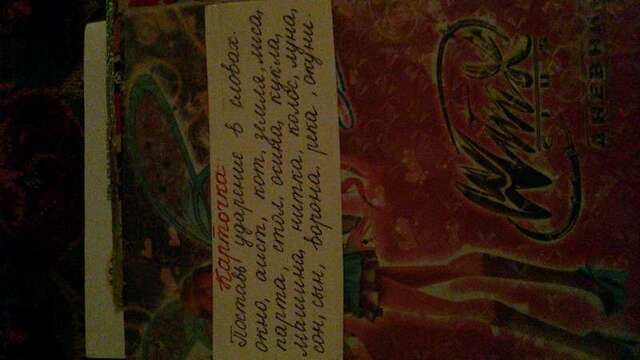 Карточка
Поставь ударение в словах
окно, аист, кот, земля, лиса,
парта, стол, осина, кукла,
машина, нитка, луна,
сон, сын, ворона, река, окуни.
Winx
CLUB
ДНЕВНИК